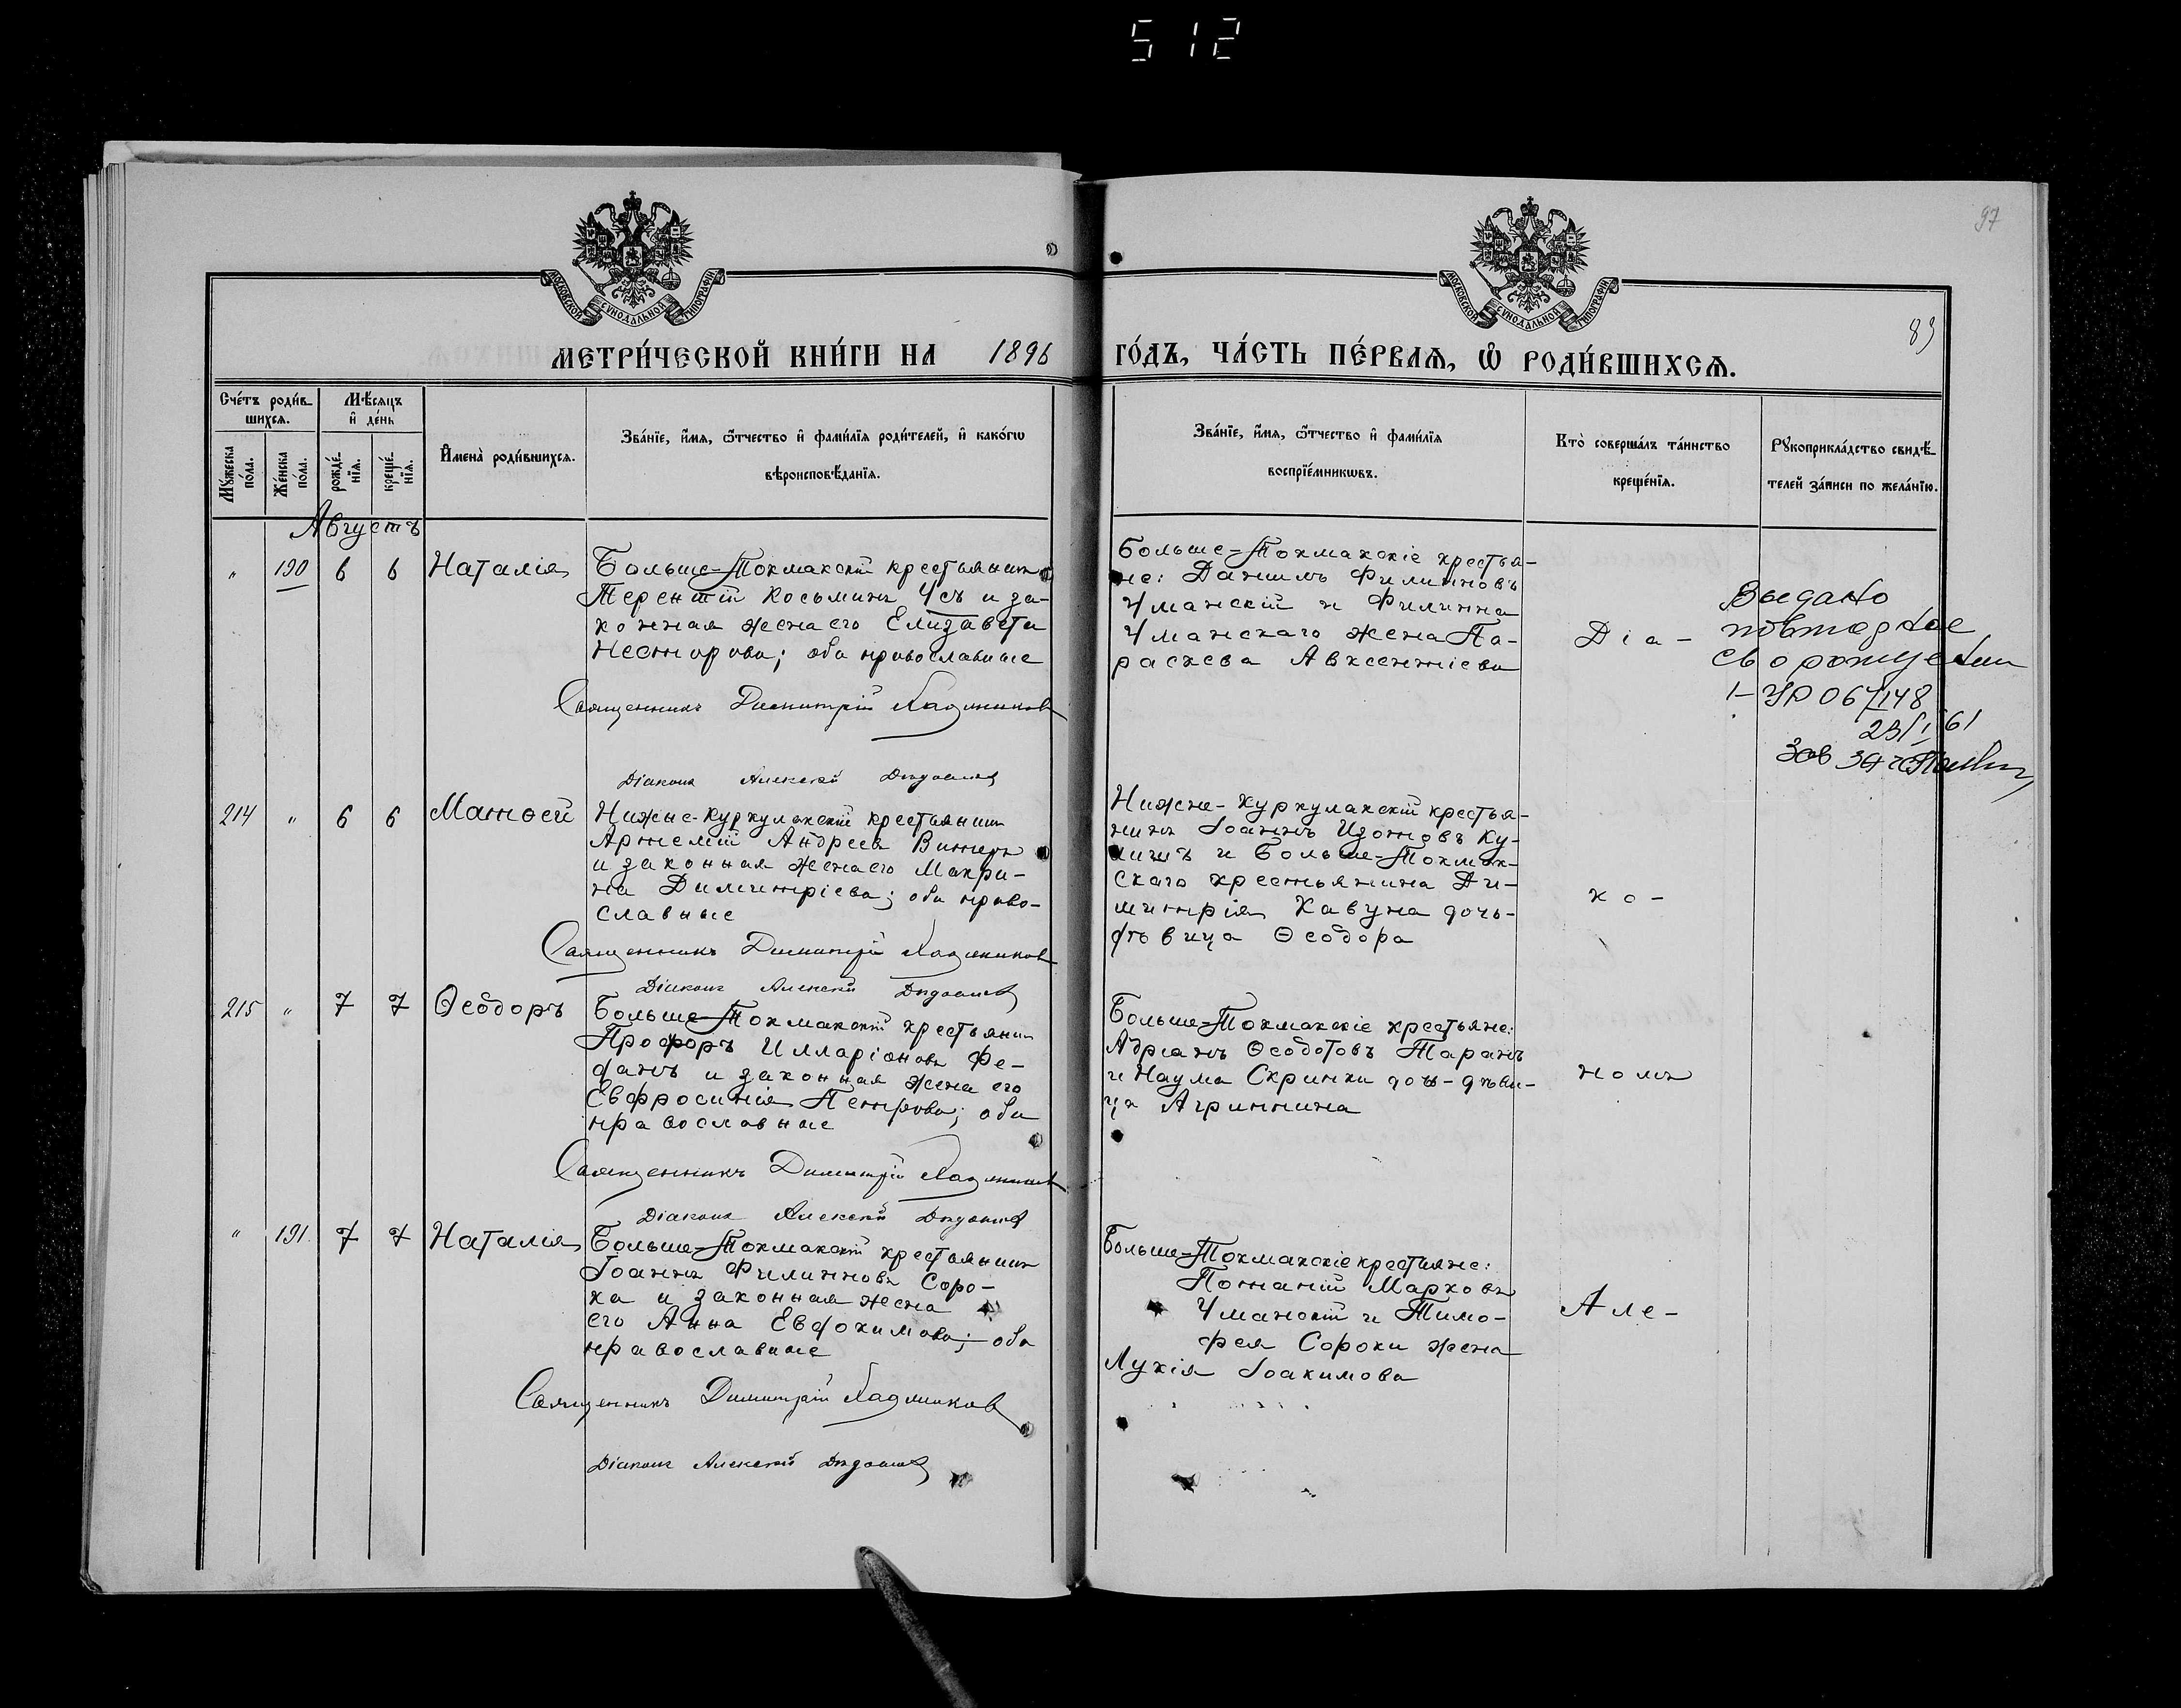 512
97
МОСКОВСКОЙ СѴНОДАЛЬНОЙ ТИПОГРАФІИ
МОСКОВСКОЙ СѴНОДАЛЬНОЙ ТИПОГРАФІИ
89
МЕТРИ́ЧЕСКОЙ КНИ́ГИ НА 1896 ГО́ДЪ, ЧА́СТЬ ПЕ́РВАѦ, Ѡ РОДИ́ВШИХСѦ.
Сче́тъ роди́в-
шихсѧ.
Мѣ́сѧцъ
и де́нь
Мꙋ́жеска
по́ла.
Же́нска
по́ла.
рожде́-
нїѧ.
креще́-
нїѧ.
Имена̀ роди́вшихсѧ.
Зва́нїе, и́мѧ, ѻ́тчество и фами́лїѧ роди́телей, и како́гѡ
вѣроисповѣ́данїѧ.
Зва́нїе, и́мѧ, ѻ́тчество и фами́лїѧ
воспрїе́мникѡвъ.
Кто̀ соверша́лъ та́инство
креще́нїѧ.
Рꙋкоприкла́дство свидѣ́-
телей за́писи по жела́нїю.
Августъ
" 190 6 6 Наталія
Больше-Токмакскій крестьянинъ
Терентій Косьминъ Усъ и за-
конная жена его Елизавета
Несторова; оба православные
Священникъ Димитрій
Діаконъ Алексѣй
Больше-Токмакскіе крестья-
не: Даніилъ Филипповъ
Уманскій и Филиппа
Уманскаго жена Па-
раскева Авксентіева
Діа-
Выдано
повторное
св о рождении
1-УР 06/148
23/I 61
Зав
214 " 6 6 Матѳей
Нижне-Куркулакскій крестьянинъ
Артемій Андреевъ
и законная жена его Макри-
на Димитріева; оба право-
славные
Священникъ Димитрій
Діаконъ Алексѣй
Нижне-Куркулакскій крестья-
нинъ Іоаннъ Изотовъ Ку-
лишъ и Больше-Токмак-
скаго крестьянина Ди-
митрія Кавуна дочь-
дѣвица Ѳеодора
ко-
215 " 7 7 Ѳеодоръ
Больше-Токмакскій крестьянинъ
Прохоръ Илларіоновъ Фе-
данъ и законная жена его
Евфросинія Петрова; оба
православные
Священникъ Димитрій
Діаконъ Алексѣй
Больше-Токмакскіе крестьяне:
Адріанъ Ѳеодотовъ Таранъ
и Наума Скрипки дочь-дѣви-
ца Агриппина
номъ
" 191. 7 7 Наталія
Больше-Токмакскій крестьянинъ
Іоаннъ Филипповъ Соро-
ка и законная жена
его Анна Евдокимова; оба
православные
Священникъ Димитрій
Діаконъ Алексѣй
Больше-Токмакскіе крестьяне:
Потапій Марковъ
Уманскій и Тимо-
фея Сороки жена
Лукія Іоакимова
Але-